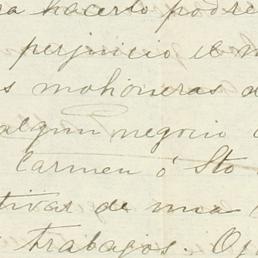 hacerlo podre
perjuicio el
mohoneras
algun negocio
Carmen ó Sto
tivar de una
trabajos. O